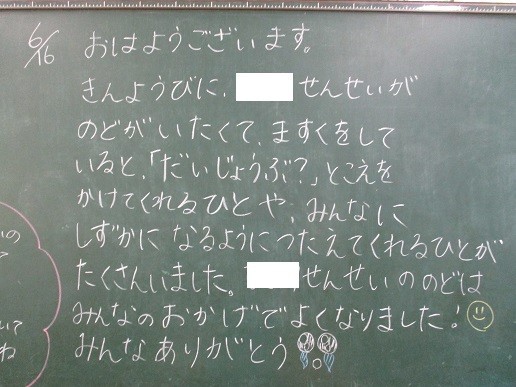 6/16 おはようございます。
きんようびに、 せんせいが
のどがいたくて、ますくをして
いると、「だいじょうぶ?」とこえを
かけてくれるひとや、みんなに
しずかになるようにつたえてくれるひとが
たくさんいました。 せんせいののどは
みんなのおかげでよくなりました!
みんなありがとう